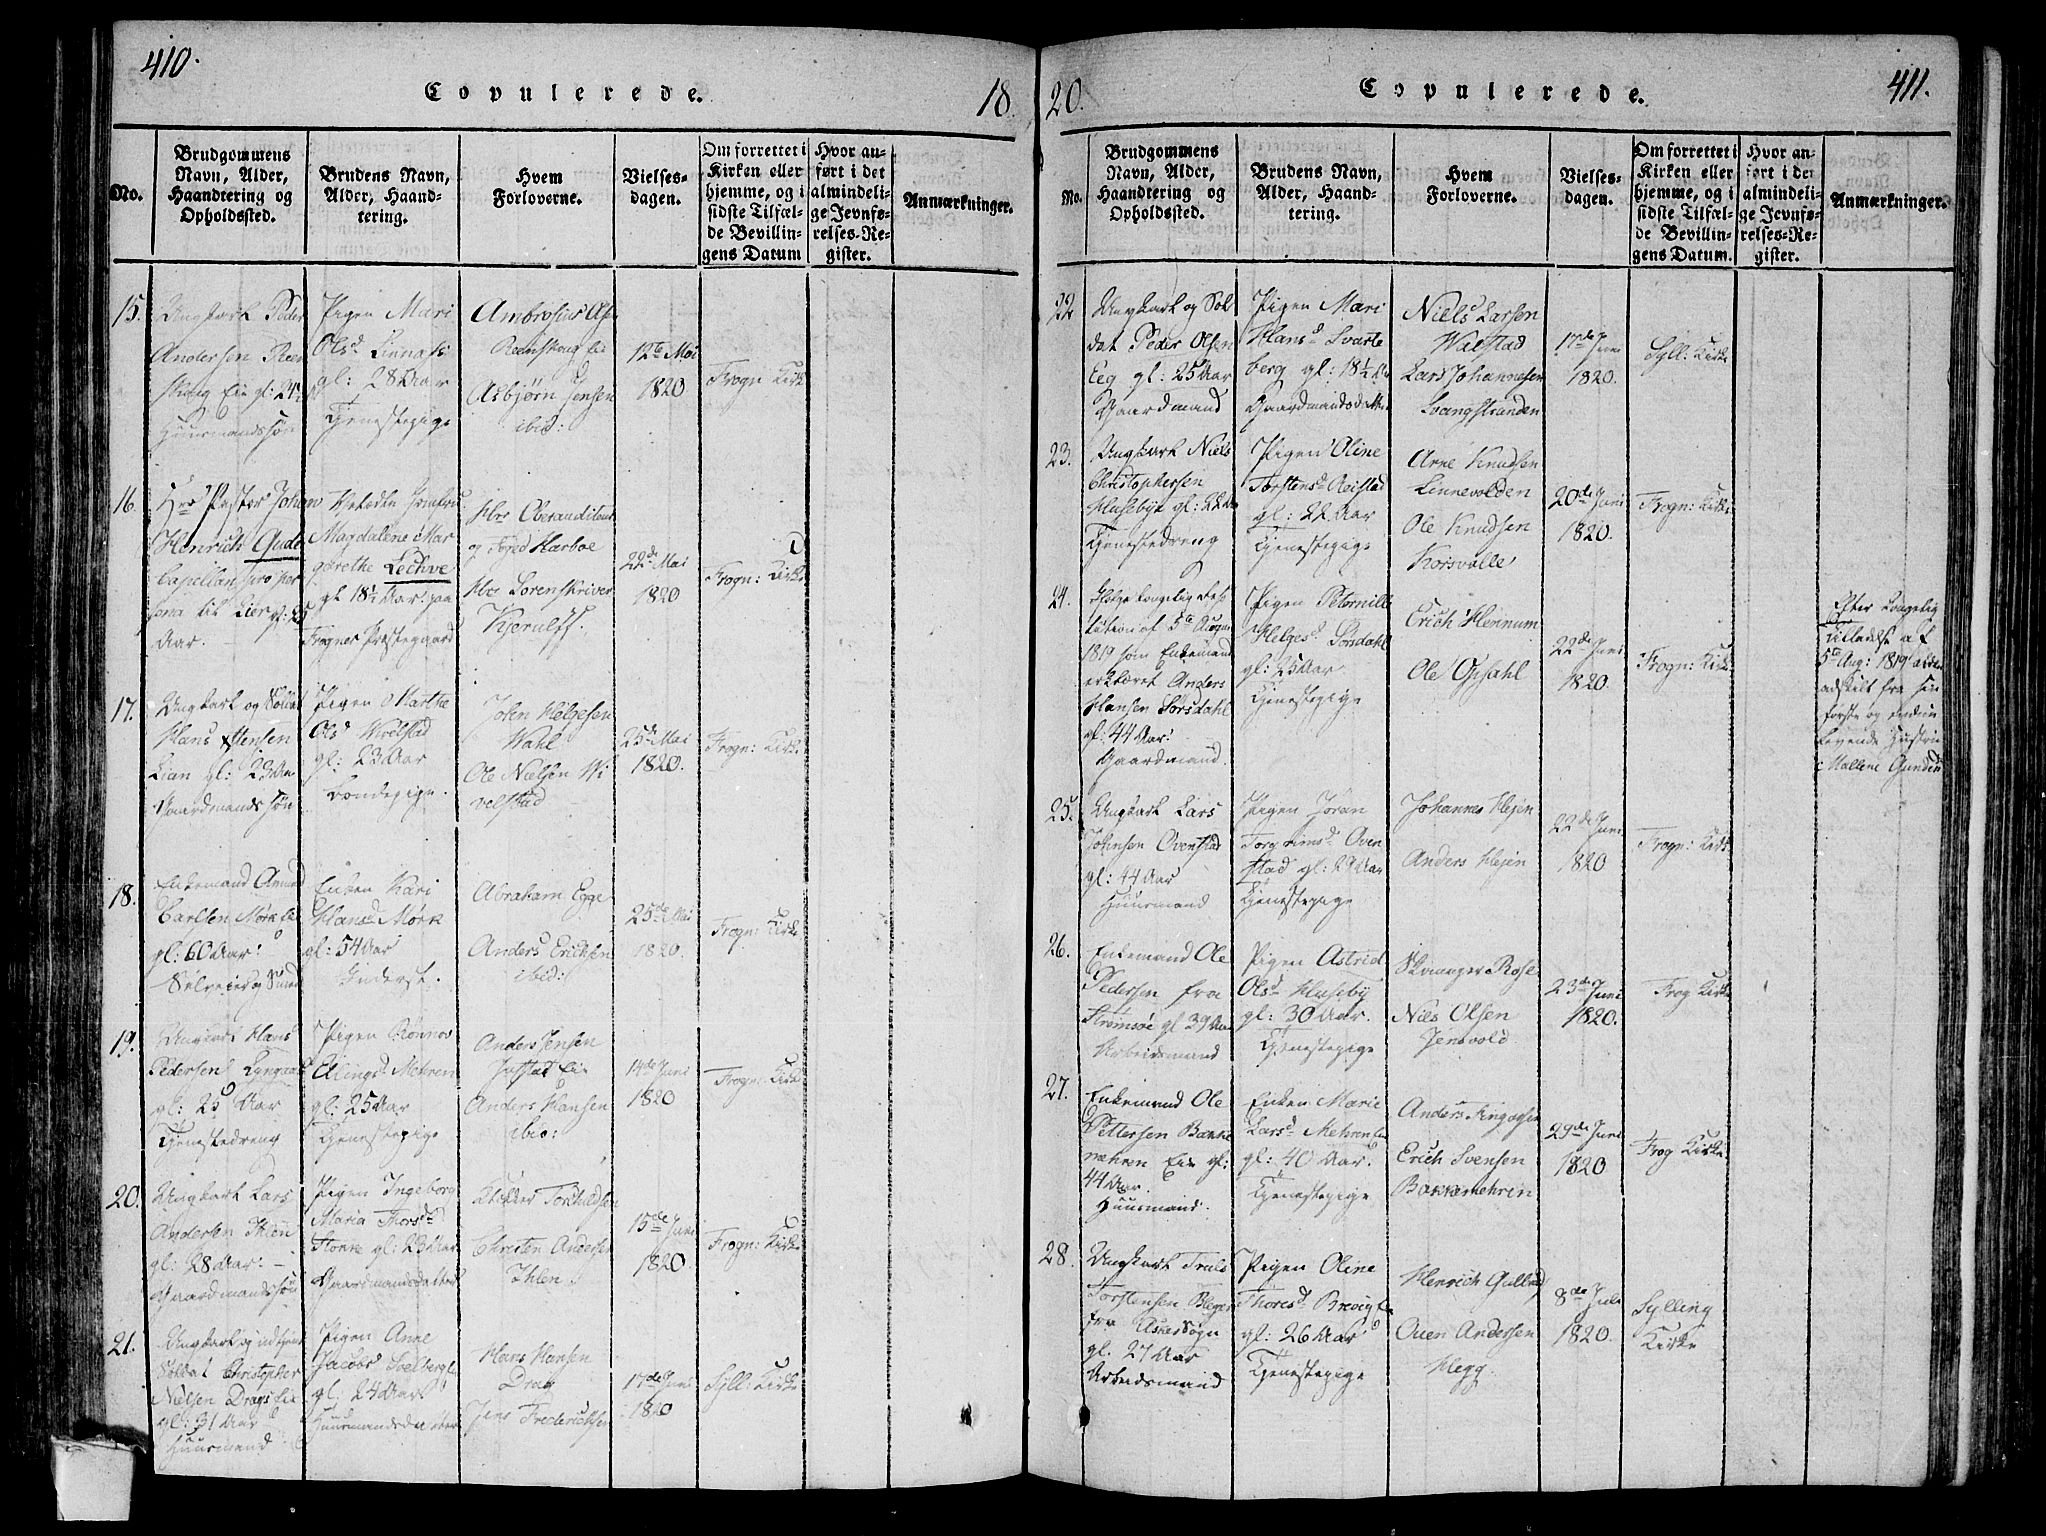 410.
Copulerede.
18
No.
Brudgommens
Navn, Alder,
Haandtering og
Opholdssted.
Brudens Navn,
Alder, Haand-
tering.
Hvem
Forloverne.
Vielses-
dagen.
Om forrettet i
Kirken eller
hjemme, og i
sidste Tilfæl-
de Bevillin-
gens Datum
Hvor an-
ført i det
almindeli-
ge Jevnfø-
relses-Re-
gister.
Anmærkninger.
15.
Ungkarl Peder
Andersen
Eie gl: 24½
Huusmandssøn
Pigen Mari
Olsd Linnæs
gl: 28 Aar
Tjenestepige
Ambrosius
Reenskoug Eie
Asbjørn Jensen
ibid:
12te Mai
1820
Frogn Kirke
16.
Hrr Pastor Johan
Henrich Gude
Capellan pro per
sona til Lier gl: 25
Aar.
Jomfru
Magdalene Mar
grethe
gl 18½ Aar: paa
Frogner Præstegaard
Hrr Oberauditeur
og Foged Harboe
Hrr Sorenskriver
Kjerulff.
22de Mai
1820
Frogn: Kirke
17.
Ungkarl og Soldat
Hans Stensen
Lian gl: 23 Aar
Gaardmandssøn
Pigen Marthe
Olsd
gl: 23 Aar
Bondepige.
John Helgesen
Wahl
Ole Nielsen Wi
velstad
25de Mai
1820.
Frogn: Kirke
18.
Enkemand Amund
Carlsen Mørk Eie
gl: 60 Aar:
Selveier og Smed
Enken Kari
Hansd Mørk
gl: 54 Aar
Inderst.
Abraham Egge
Anders Erichsen
ibid:
25de Mai
1820.
Frogn: Kirke
19.
Ungkarl Hans
Pedersen Lyngaas
gl: 25 Aar
Tjenestedreng
Pigen Rønnov
Elingsd Mehren
gl: 25 Aar
Tjenestepige
Anders Jensen
Justad Eie
Anders Hansen
ibid:
14de Juni
1820
Frogn: Kirke
20.
Ungkarl Lars
Andersen Ihlen
gl: 28 Aar: –
Gaardmandssøn
Pigen Ingeborg
Maria Thorsd
gl: 23 Aar
Gaardmandsdatter
Torkildsen
Christen Andersen
Ihlen
15de Juni
1820
Frogn: Kirke
21.
Ungkarl og udtjent
Soldat Christopher
Nielsen Drags Eie
gl: 31 Aar
Huusmand
Pigen Anne
Jacobsd Svelberg
gl: 24 Aar
Huusmandsdatter
Hans Hansen
Drag
Jens Frederichsen
17de Juni
1820
Syll: Kirke
20.
Copulerede.
411.
No.
Brudgommens
Navn, Alder,
Haandtering og
Opholdssted.
Brudens Navn,
Alder, Haand-
tering.
Hvem
Forloverne.
Vielses-
dagen.
Om forrettet i
Kirken eller
hjemme, og i
sidste Tilfæl-
de Bevillin-
gens Datum.
Hvor an-
ført i det
almindeli-
ge Jevnfø-
relses-Re-
gister.
Anmærkninger.
22
Ungkarl og Sol
dat Peder Olsen
Eeg gl: 25 Aar
Gaardmand
Pigen Mari
Hansd Svarte
berg gl: 18½ Aar
Niels Larsen
Walstad
Lars Johannesen
Svangstranden
17de Juni
1820.
Syll: Kirke
23.
Ungkarl Niels
Christophersen
Huseby gl: 22 Aar
Tjenestedreng
Pigen Oline
Torstensd Reistad
gl: 22 Aar
Tjenestepige
Arne Knudsen
Linnevolden
Ole Knudsen
Korsvolle
20de Juni
1820.
Frogn: Kirke
24.
Ifølge kongelig Reso
lution af 5te August
1819 som Enkemand
erklæret Anders
Hansen Sørsdahl
gl: 44 Aar:
Gaardmand
Pigen Petornille
Helgesd Sørsdahl
gl: 25 Aar
Tjenestepige
Erich Hennum
Ole Opsahl
22de Juni
1820.
Frogn: Kirke
Efter kongelig
Tilladelse af
5te Aug: 1819
adskilt fra sin
første og endnu
levende Hustrue
25.
Ungkarl Lars
Johnsen Ovenstad
gl: 44 Aar
Huusmand
Pigen Joran
Torgrimsd Oven
stad gl: 29 Aar
Tjenestepige
Johannes Hejen
Anders Hejen
22de Juni
1820
Frogn: Kirke
26.
Enkemand Ole
Pedersen fra
Strømsøe gl 39 Aar
Arbeidsmand
Pigen Astrid
Olsd Huseby
gl: 30 Aar.
Tjenestepige
Rose
Niels Olsen
Jensvold
23de Juni
1820.
Frog Kirke
27.
Enkemand Ole
Pettersen Bakke
mehren Eie gl:
44 Aar.
Huusmand.
Enken Marie
Larsd Mehren Eie
gl: 40 Aar.
Tjenestepige
Anders
Erich Svensen
Bakkemehren
29de Juni
1820
Frog Kirke
28.
Ungkarl Truls
Torstensen
fra Asker Sogn
gl. 27 Aar
Arbeidsmand
Pigen Oline
Thoresd Brevig Eie
gl: 26 Aar
Tjenestepige
Henrich
Ouen Andersen
Hegg.
8de Juli
1820.
Sylling
Kirke